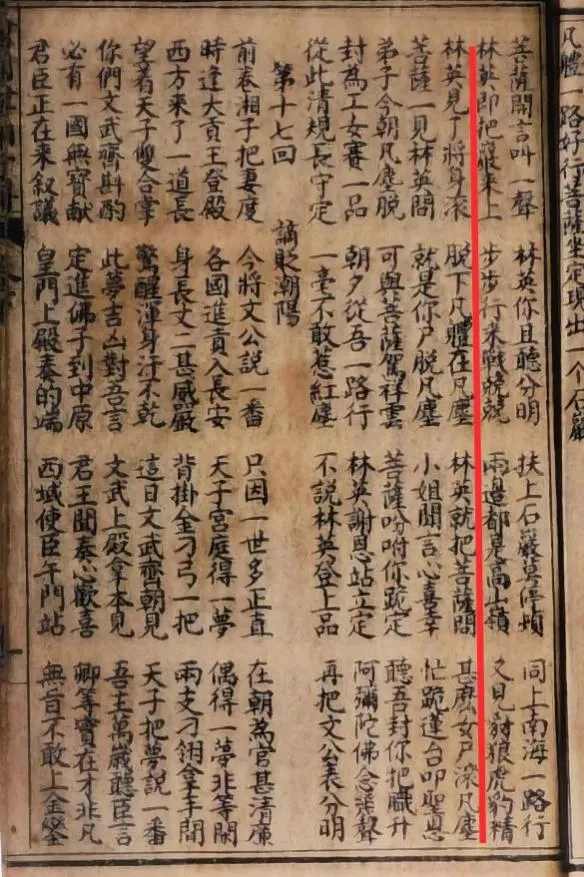 凡體一路好行菩薩坐定現出一个石巖
菩薩開言叫一聲 林英你且聽分明 扶上石巖莫停頓 同上南海一路行
林英即把巖来上 步步行来戰兢兢 兩邊都是高山嶺 又見豺狼虎豹精
林英見了將身滚 脫下凡體在凡塵 林英就把菩薩問 甚麽女尸滚凡塵
菩薩一見林英問 就是你尸脫凡塵 小姐聞言心喜幸 忙跪蓮台叩聖恩
弟子今朝凡塵脫 可與菩薩駕祥雲 菩薩吩咐你跪定 聽吾封你把職升
封為工女賽一品 朝夕從吾一路行 林英謝恩站立定 阿彌陀佛念幾聲
從此清規長守定 一毫不敢惹紅塵 不說林英登上品 再把文公表分明
第十七回 謫貶朝陽
前卷湘子把妻度 今將文公說一番 只因一世多正直 在朝為官甚清廉
時逢大貢王登殿 各國進貢入長安 天子宮庭得一夢 偶得一夢非等閑
西方來了一道長 身長丈二甚威嚴 背掛金刁弓一把 兩支刁翎拿手間
望着天子雙合掌 驚醒渾身汗不乾 這日文武齊朝見 天子把夢說一番
你們文武齋斟酌 此夢吉凶對吾言 文武上殿拿本見 吾王萬歲聽臣言
必有一國無寶献 定進佛子到中原 君王聞奏心歡喜 卿等實在才非凡
君臣正在来叙議 皇門上殿奏的端 西域使臣午門站 無旨不敢上金鑾